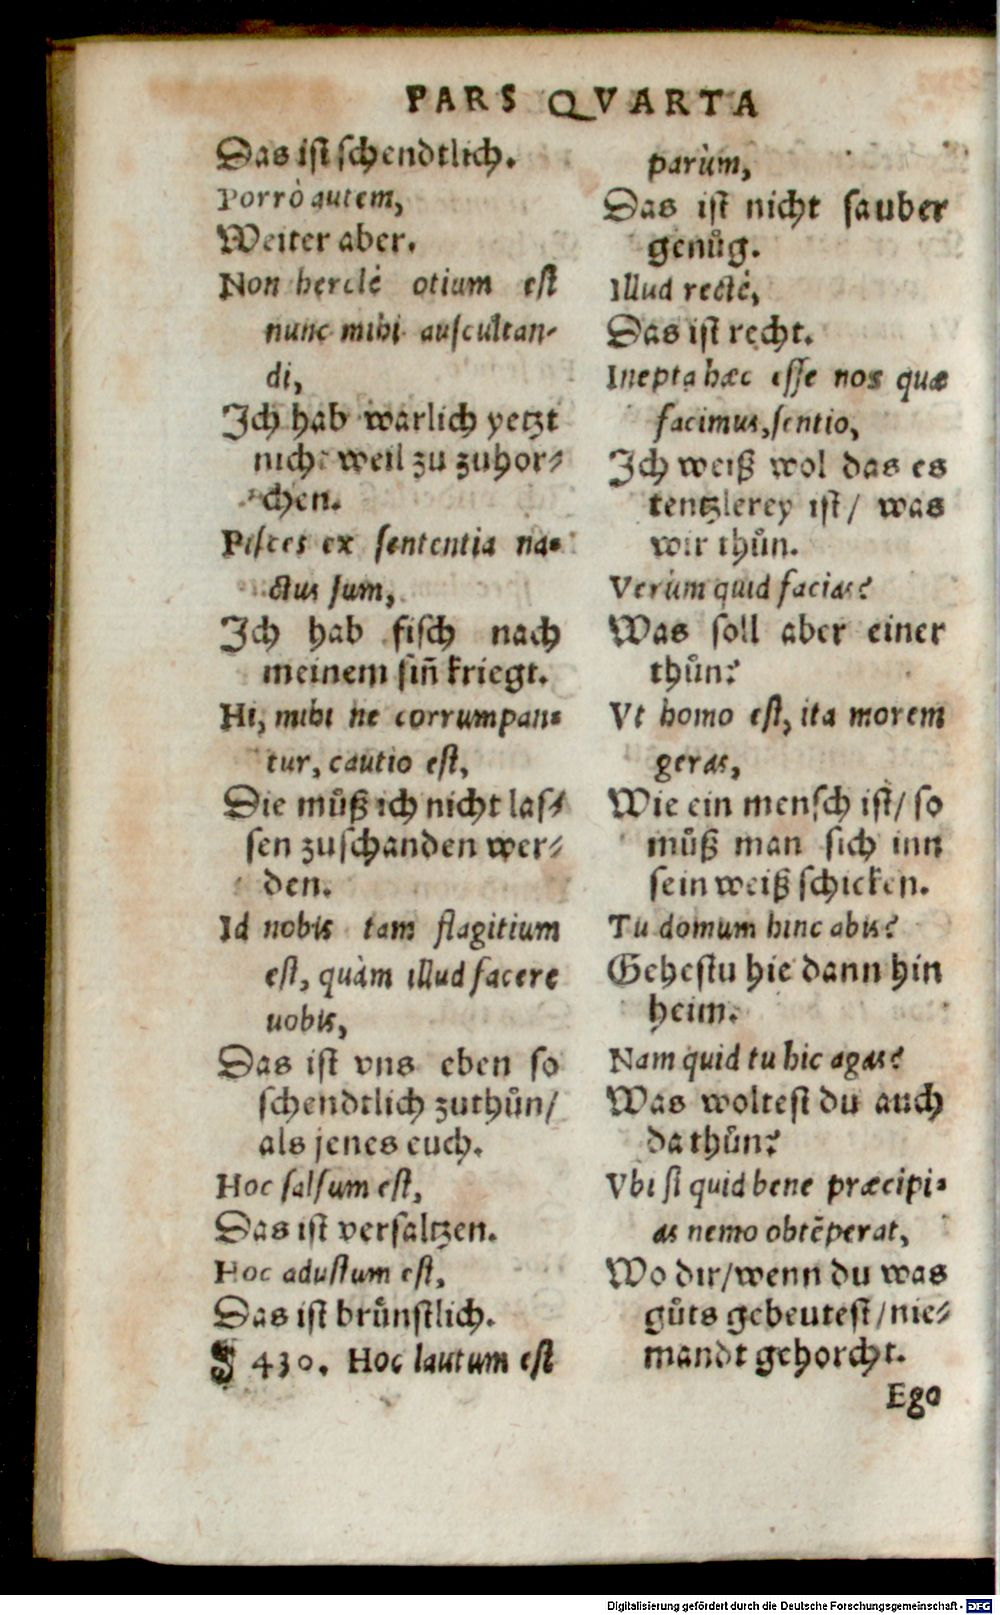 PARS QVARTA
Das ist schendtlich.
Porrò autem,
Weiter aber.
Non herclè otium est
nunc mihi auscultan-
di,
Ich hab warlich yetzt
nicht weil zu zuhor-
chen.
Pisces ex sententia na-
ctus sum,
Ich hab fisch nach
meinem siñ kriegt.
Hi, mihi ne corrumpan-
tur, cautio est,
Die můß ich nicht las-
sen zuschanden wer-
den.
Id nobis tam flagitium
est, quàm illud facere
uobis,
Das ist vns eben so
schendtlich zuthůn/
als jenes euch.
Hoc salsum est,
Das ist versaltzen.
Hoc adustum est,
Das ist brůnstlich.
¶ 430. Hoc lautum est
parùm,
Das ist nicht sauber
genůg.
Illud rectè,
Das ist recht.
Inepta hæc esse nos quæ
facimus, sentio,
Ich weiß wol das es
tentzlerey ist/ was
wir thůn.
Verùm quid facias?
Was soll aber einer
thůn?
Vt homo est, ita morem
geras,
Wie ein mensch ist/ so
můß man sich inn
sein weiß schicken.
Tu domum hinc abis?
Gehestu hie dann hin
heim.
Nam quid tu hic agas?
Was woltest du auch
da thůn?
Vbi si quid bene præcipi-
as nemo obtẽperat,
Wo dir/wenn du was
gůts gebeutest/nie-
mandt gehorcht.
Ego
Digitalisierung gefördert durch die Deutsche Forschungsgemeinschaft - DFG